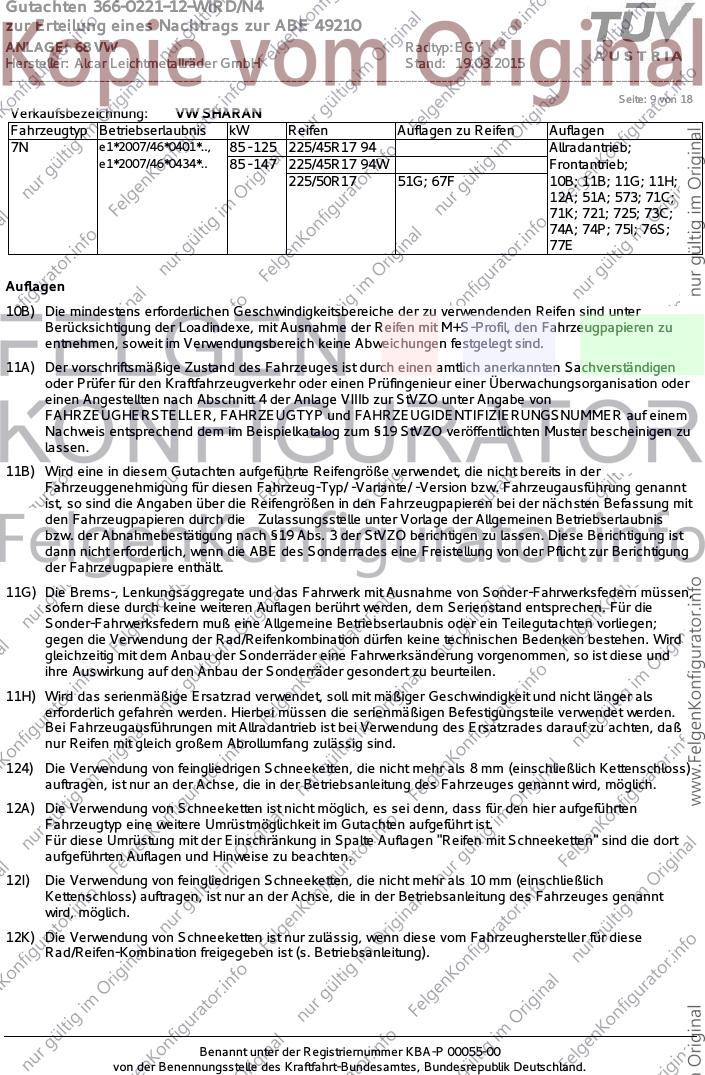 Gutachten 366-0221-12-WIRD/N4
zur Erteilung eines Nachtrags zur ABE 49210
ANLAGE: 68 VW
Hersteller: Alcar Leichtmetallräder GmbH
Radtyp: EGY
Stand: 19.03.2015
TÜV
AUSTRIA
Kopie vom Original
Seite: 9 von 18
Verkaufsbezeichnung: VW SHARAN
Fahrzeugtyp Betriebserlaubnis kW Reifen Auflagen zu Reifen Auflagen
7N e1*2007/46*0401*.., 85-125 225/45R17 94 Allradantrieb;
e1*2007/46*0434*.. 85-147 225/45R17 94W Frontantrieb;
225/50R17 51G; 67F 10B; 11B; 11G; 11H;
12A; 51A; 573; 71C;
71K; 721; 725; 73C;
74A; 74P; 75I; 76S;
77E
Auflagen
10B) Die mindestens erforderlichen Geschwindigkeitsbereiche der zu verwendenden Reifen sind unter
Berücksichtigung der Loadindexe, mit Ausnahme der Reifen mit M+S-Profil, den Fahrzeugpapieren zu
entnehmen, soweit im Verwendungsbereich keine Abweichungen festgelegt sind.
11A) Der vorschriftsmäßige Zustand des Fahrzeuges ist durch einen amtlich anerkannten Sachverständigen
oder Prüfer für den Kraftfahrzeugverkehr oder einen Prüfingenieur einer Überwachungsorganisation oder
einen Angestellten nach Abschnitt 4 der Anlage VIIIb zur StVZO unter Angabe von
FAHRZEUGHERSTELLER, FAHRZEUGTYP und FAHRZEUGIDENTIFIZIERUNGSNUMMER auf einem
Nachweis entsprechend dem im Beispielkatalog zum §19 StVZO veröffentlichten Muster bescheinigen zu
lassen.
11B) Wird eine in diesem Gutachten aufgeführte Reifengröße verwendet, die nicht bereits in der
Fahrzeuggenehmigung für diesen Fahrzeug-Typ/ -Variante/ -Version bzw. Fahrzeugausführung genannt
ist, so sind die Angaben über die Reifengrößen in den Fahrzeugpapieren bei der nächsten Befassung mit
den Fahrzeugpapieren durch die Zulassungsstelle unter Vorlage der Allgemeinen Betriebserlaubnis
bzw. der Abnahmebestätigung nach §19 Abs. 3 der StVZO berichtigen zu lassen. Diese Berichtigung ist
dann nicht erforderlich, wenn die ABE des Sonderrades eine Freistellung von der Pflicht zur Berichtigung
der Fahrzeugpapiere enthält.
11G) Die Brems-, Lenkungsaggregate und das Fahrwerk mit Ausnahme von Sonder-Fahrwerksfedern müssen,
sofern diese durch keine weiteren Auflagen berührt werden, dem Serienstand entsprechen. Für die
Sonder-Fahrwerksfedern muß eine Allgemeine Betriebserlaubnis oder ein Teilegutachten vorliegen;
gegen die Verwendung der Rad/Reifenkombination dürfen keine technischen Bedenken bestehen. Wird
gleichzeitig mit dem Anbau der Sonderräder eine Fahrwerksänderung vorgenommen, so ist diese und
ihre Auswirkung auf den Anbau der Sonderräder gesondert zu beurteilen.
11H) Wird das serienmäßige Ersatzrad verwendet, soll mit mäßiger Geschwindigkeit und nicht länger als
erforderlich gefahren werden. Hierbei müssen die serienmäßigen Befestigungsteile verwendet werden.
Bei Fahrzeugausführungen mit Allradantrieb ist bei Verwendung des Ersatzrades darauf zu achten, daß
nur Reifen mit gleich großem Abrollumfang zulässig sind.
124) Die Verwendung von feingliedrigen Schneeketten, die nicht mehr als 8 mm (einschließlich Kettenschloss)
auftragen, ist nur an der Achse, die in der Betriebsanleitung des Fahrzeuges genannt wird, möglich.
12A) Die Verwendung von Schneeketten ist nicht möglich, es sei denn, dass für den hier aufgeführten
Fahrzeugtyp eine weitere Umrüstmöglichkeit im Gutachten aufgeführt ist.
Für diese Umrüstung mit der Einschränkung in Spalte Auflagen "Reifen mit Schneeketten" sind die dort
aufgeführten Auflagen und Hinweise zu beachten.
12I) Die Verwendung von feingliedrigen Schneeketten, die nicht mehr als 10 mm (einschließlich
Kettenschloss) auftragen, ist nur an der Achse, die in der Betriebsanleitung des Fahrzeuges genannt
wird, möglich.
12K) Die Verwendung von Schneeketten ist nur zulässig, wenn diese vom Fahrzeughersteller für diese
Rad/Reifen-Kombination freigegeben ist (s. Betriebsanleitung).
FELGEN
KONFIGURATOR
FelgenKonfigurator.info
nur gültig im Original
www.FelgenKonfigurator.info
Benannt unter der Registriernummer KBA-P 00055-00
von der Benennungsstelle des Kraftfahrt-Bundesamtes, Bundesrepublik Deutschland.